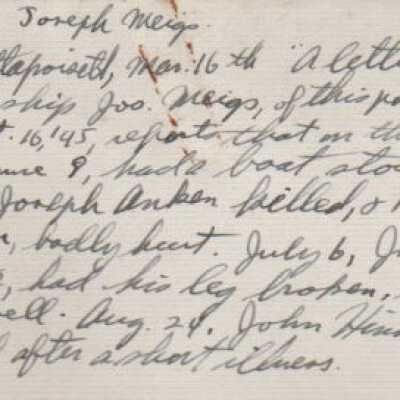 Joseph Meigs.
ttapoisett, Mar. 16th "A lette
ship Jos. Meigs, of this po
t. 16, '45, reports that on th
une 9, had a boat stov
Joseph Anken killed, &
, badly hurt. July 6, J
, had his leg broken,
ell. Aug. 24, John Hin
after a short illness.